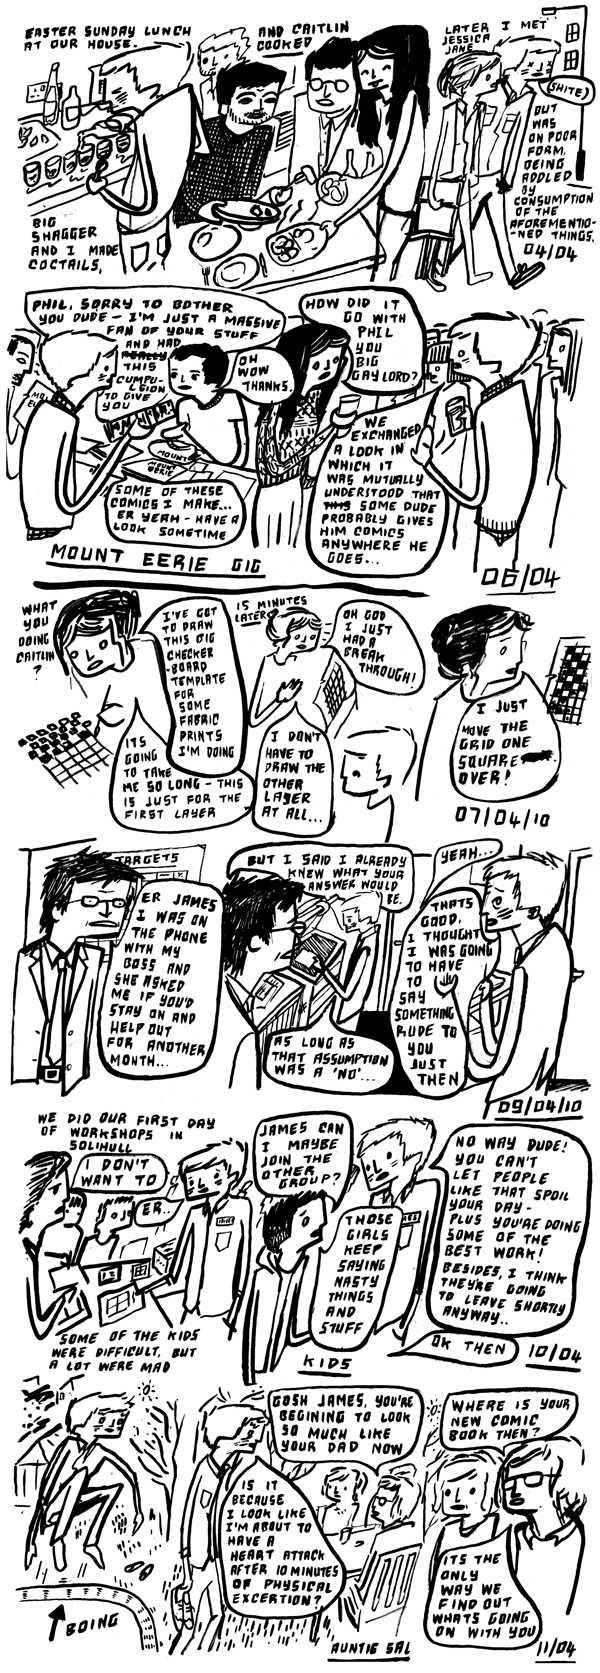 EASTER SUNDAY LUNCH
AT OUR HOUSE.
AND CAITLIN
COOKED
LATER I MET
JESSICA
JANE
(SHITE)
BUT
WAS
ON POOR
FORM,
BEING
ADDLED
BY
CONSUMPTION
OF THE
AFOREMENTIO-
-NED THINGS.
04/04
BIG
SHAGGER
AND I MADE
COCTAILS,
PHIL, SORRY TO BOTHER
YOU DUDE - I'M JUST A MASSIVE
FAN OF YOUR STUFF
AND HAD
REALLY
THIS
CUMPU-
LSION
TO GIVE
YOU
OH
WOW
THANKS.
MOUNT
MOUNT
EERIE
SOME OF THESE
COMICS I MAKE...
ER YEAH - HAVE A
LOOK SOMETIME
MOUNT EERIE GIG
HOW DID IT
GO WITH
PHIL
YOU
BIG
GAYLORD?
WE
EXCHANGED
A LOOK IN
WHICH IT
WAS MUTUALLY
UNDERSTOOD THAT
THIS SOME DUDE
PROBABLY GIVES
HIM COMICS
ANYWHERE HE
GOES...
06/04
WHAT
YOU
DOING
CAITLIN
?
I'VE GOT
TO DRAW
THIS BIG
CHECKER
-BOARD
TEMPLATE
FOR
SOME
FABRIC
PRINTS
I'M DOING
ITS
GOING
TO TAKE
ME SO LONG - THIS
IS JUST FOR THE
FIRST LAYER
15 MINUTES
LATER
OH GOD
I JUST
HAD A
BREAK
THROUGH!
I DON'T
HAVE TO
DRAW THE
OTHER
LAYER
AT ALL...
I JUST
MOVE THE
GRID ONE
SQUARE
OVER!
07/04/10
TARGETS
ER JAMES
I WAS ON
THE PHONE
WITH MY
BOSS AND
SHE ASKED
ME IF YOU'D
STAY ON AND
HELP OUT
FOR ANOTHER
MONTH...
BUT I SAID I ALREADY
KNEW WHAT YOUR
ANSWER WOULD
BE.
AS LONG AS
THAT ASSUMPTION
WAS A 'NO'...
YEAH...
THATS
GOOD,
I THOUGHT
I WAS GOING
TO HAVE
TO
SAY
SOMETHING
RUDE TO
YOU
JUST
THEN
09/04/10
WE DID OUR FIRST DAY
OF WORKSHOPS IN
SOLIHULL
I DON'T
WANT TO
ER..
SOME OF THE KIDS
WERE DIFFICULT, BUT
A LOT WERE MAD
JAMES CAN
I MAYBE
JOIN THE
OTHER
GROUP?
THOSE
GIRLS
KEEP
SAYING
NASTY
THINGS
AND
STUFF
KIDS
NO WAY DUDE!
YOU CAN'T
LET PEOPLE
LIKE THAT SPOIL
YOUR DAY -
PLUS YOU'RE DOING
SOME OF THE
BEST WORK!
BESIDES, I THINK
THEY'RE GOING
TO LEAVE SHORTLY
ANYWAY..
OK THEN
10/04
BOING
GOSH JAMES, YOU'RE
BEGINING TO LOOK
SO MUCH LIKE
YOUR DAD NOW
IS IT
BECAUSE
I LOOK LIKE
I'M ABOUT TO
HAVE A
HEART ATTACK
AFTER 10 MINUTES
OF PHYSICAL
EXCERTION?
AUNTIE SAL
WHERE IS YOUR
NEW COMIC
BOOK THEN?
ITS THE
ONLY
WAY WE
FIND OUT
WHATS GOING
ON WITH YOU
11/04